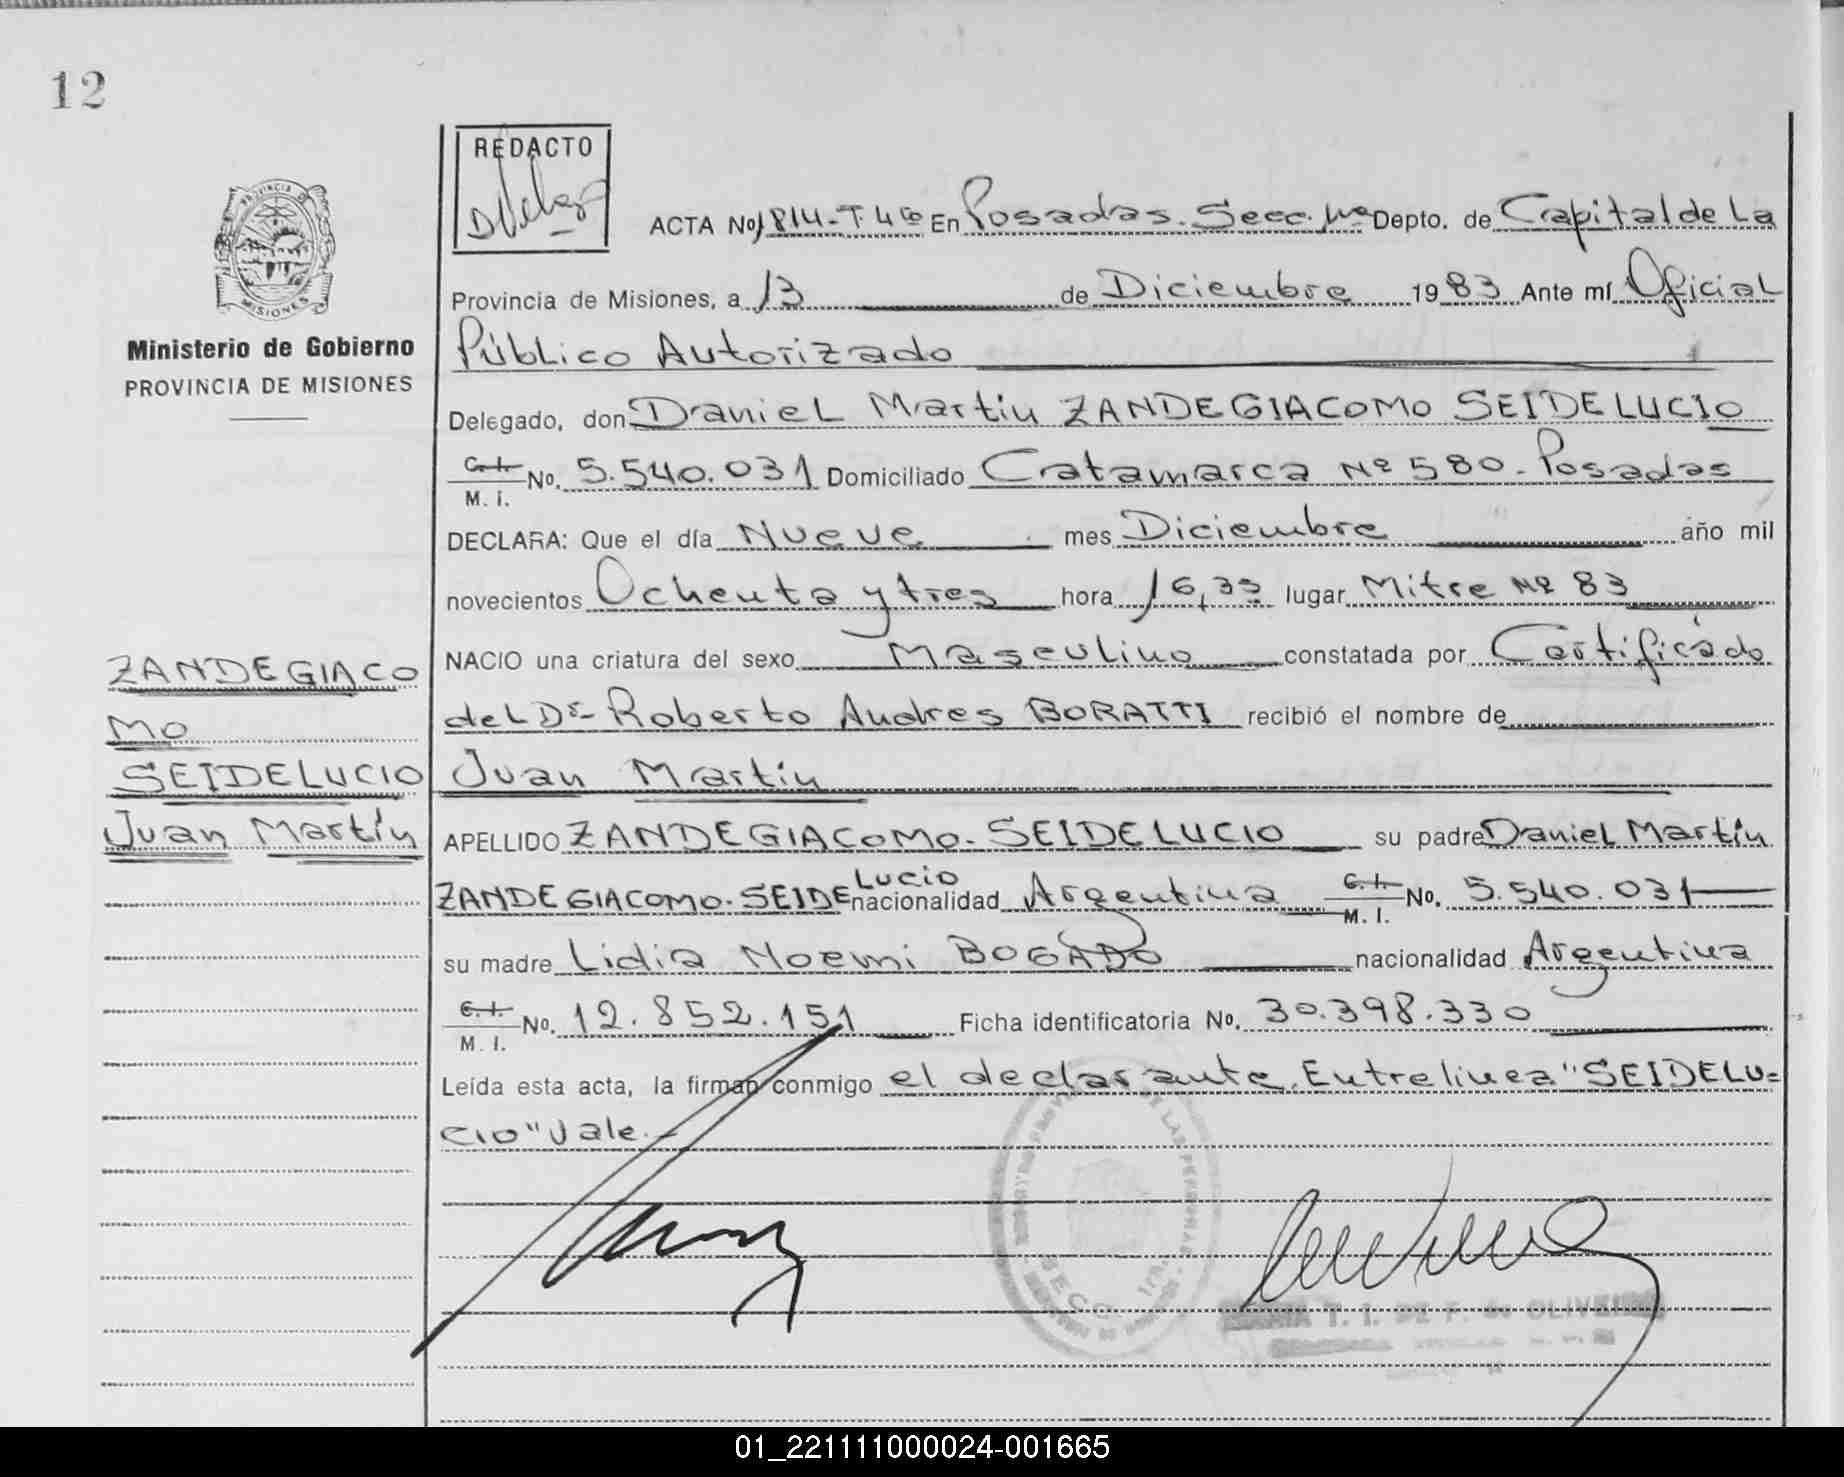 12
REDACTO
PROVINCIA DE
MISIONES
Ministerio de Gobierno
PROVINCIA DE MISIONES
ACTA No 1814-T.4to En Posadas. Secc. 1ra Depto. de Capital de La
Provincia de Misiones, a 13 de Diciembre 1983 Ante mí Oficial
Público Autorizado
Delegado, don Daniel Martin ZANDEGIACOMO SEIDELUCIO
C.I.
M. I. No. 5.540.031 Domiciliado Catamarca Nº 580 - Posadas
DECLARA: Que el día Nueve mes Diciembre año mil
novecientos Ochenta y tres hora 16,35 lugar Mitre Nº 83
NACIO una criatura del sexo Masculino constatada por Certificado
del Dr- Roberto Andres BORATTI recibió el nombre de
Juan Martín
APELLIDO ZANDEGIACOMO-SEIDELUCIO su padre Daniel Martín
LUCIO
ZANDEGIACOMO-SEIDE nacionalidad Argentina C.I.
M. I. No. 5.540.031
su madre Lidia Noemi BOGADO nacionalidad Argentina
C.I.
M. I. No. 12.852.151 Ficha identificatoria No. 30.398.330
Leída esta acta, la firman conmigo el declarante. Entrelínea "SEIDELU=
CIO" Vale.-
ZANDEGIACO
MO
SEIDELUCIO
Juan Martín
DE LAS PERSONAS
SECC. 1ra.
MARIA T. I. DE F. de OLIVEIRA
01_221111000024-001665